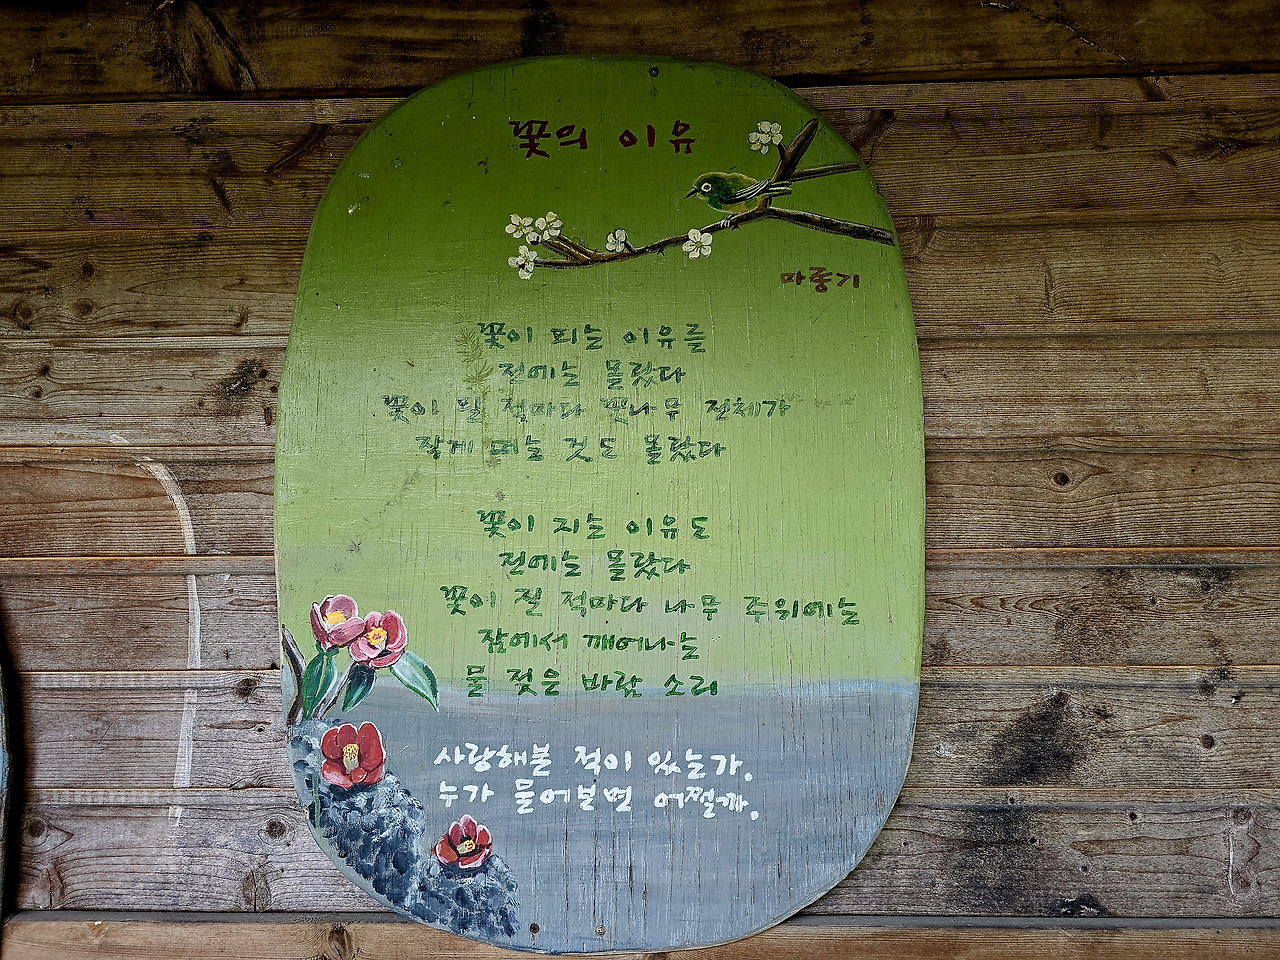 꽃의 이유
마종기
꽃이 피는 이유를
전에는 몰랐다
꽃이 필 적마다 꽃나무 전체가
작게 떠는 것도 몰랐다
꽃이 지는 이유도
전에는 몰랐다
꽃이 질 적마다 나무 주위에는
잠에서 깨어나는
물 젖은 바람 소리
사랑해본 적이 있는가.
누가 물어보면 어쩔까.